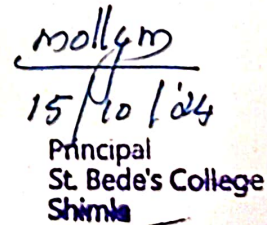 mollym
15/10/'24
Principal
St. Bede's College
Shimla